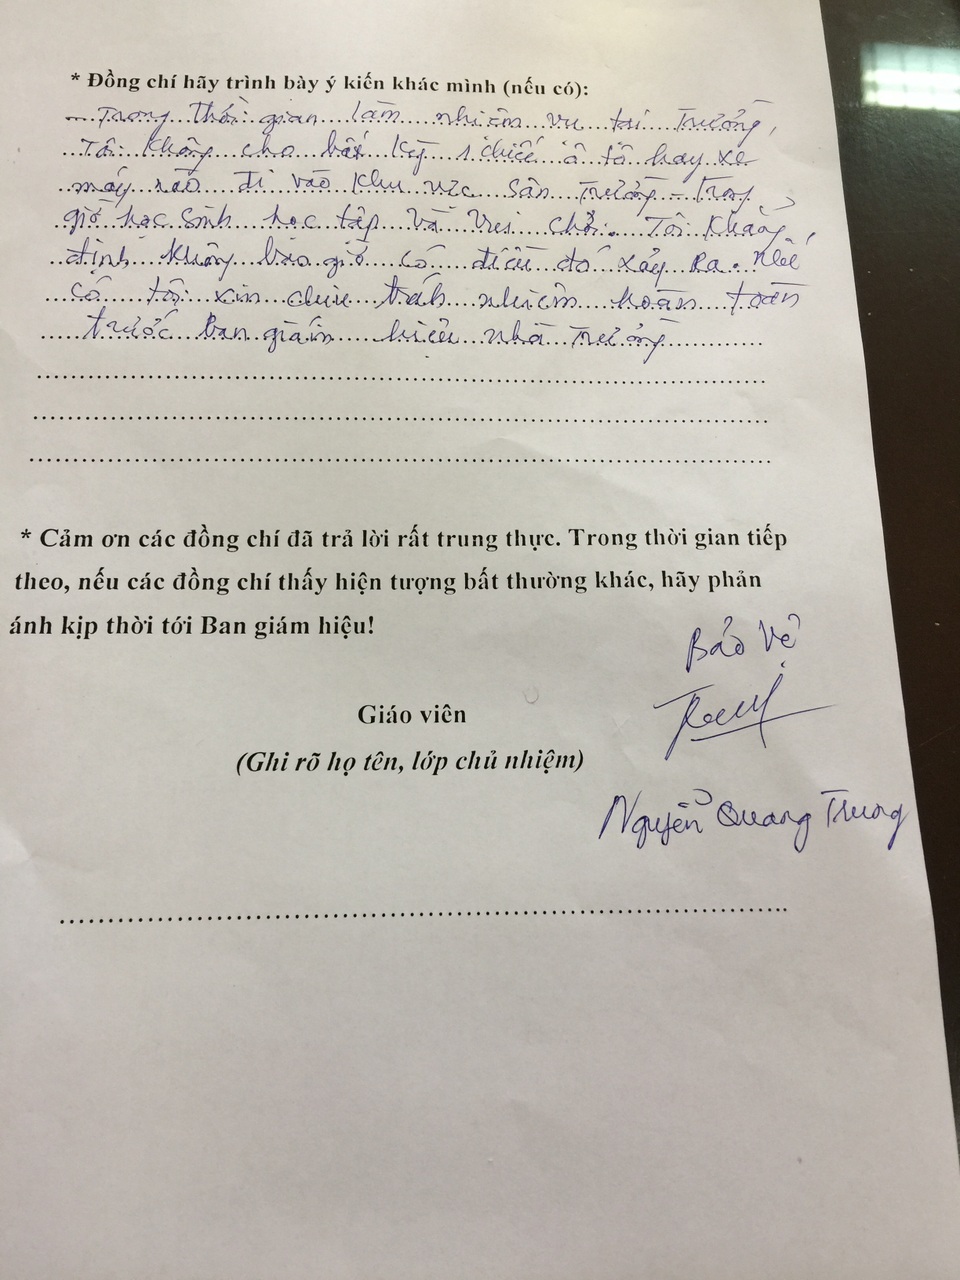 * Đồng chí hãy trình bày ý kiến khác mình (nếu có):
Trong thời gian làm nhiệm vụ tại Trường,
Tôi không cho bất kỳ 1 chiếc ô tô hay xe
máy nào đi vào khu vực sân Trường - Trong
giờ học sinh học tập và vui chơi. Tôi khẳng
định không bao giờ có điều đó xảy ra. Nếu
có tôi xin chịu trách nhiệm hoàn toàn
trước Ban giám hiệu nhà Trường
* Cảm ơn các đồng chí đã trả lời rất trung thực. Trong thời gian tiếp
theo, nếu các đồng chí thấy hiện tượng bất thường khác, hãy phản
ánh kịp thời tới Ban giám hiệu!
Bảo vệ
Giáo viên
(Ghi rõ họ tên, lớp chủ nhiệm)
Nguyễn Quang Trung